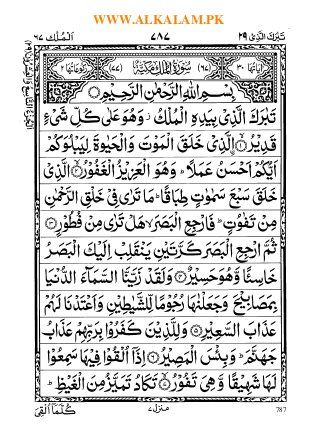 WWW.ALKALAM.PK
تَبٰرَكَ الَّذِیْ ٢٩ ٧٨٧ اَلْمُلْك ٦٧
اٰیَاتُهَا ٣٠ (٦٧) سُوْرَةُ الْمُلْكِ مَكِّیَّةٌ (٧٧) رُكُوْعَاتُهَا ٢
بِسْمِ اللّٰهِ الرَّحْمٰنِ الرَّحِیْمِ
تَبٰرَكَ الَّذِیْ بِیَدِهِ الْمُلْكُ٘ وَهُوَ عَلٰی كُلِّ شَیْءٍ
قَدِیْرُ ۙ﴿١﴾ اِۨلَّذِیْ خَلَقَ الْمَوْتَ وَالْحَیٰوةَ لِیَبْلُوَكُمْ
اَیُّكُمْ اَحْسَنُ عَمَلًاؕ وَهُوَ الْعَزِیْزُ الْغَفُوْرُ ۙ﴿٢﴾ الَّذِیْ
خَلَقَ سَبْعَ سَمٰوٰتٍ طِبَاقًاؕ مَا تَرٰی فِیْ خَلْقِ الرَّحْمٰنِ
مِنْ تَفٰوُتٍؕ فَارْجِعِ الْبَصَرَۙ هَلْ تَرٰی مِنْ فُطُوْرٍ ﴿٣﴾
ثُمَّ ارْجِعِ الْبَصَرَ كَرَّتَیْنِ یَنْقَلِبْ اِلَیْكَ الْبَصَرُ
خَاسِئًا وَّهُوَ حَسِیْرٌ ﴿٤﴾ وَلَقَدْ زَیَّنَّا السَّمَآءَ الدُّنْیَا
بِمَصَابِیْحَ وَجَعَلْنٰهَا رُجُوْمًا لِّلشَّیٰطِیْنِ وَاَعْتَدْنَا لَهُمْ
عَذَابَ السَّعِیْرِ ﴿٥﴾ وَلِلَّذِیْنَ كَفَرُوْا بِرَبِّهِمْ عَذَابُ
جَهَنَّمَؕ وَبِئْسَ الْمَصِیْرُ ﴿٦﴾ اِذَاۤ اُلْقُوْا فِیْهَا سَمِعُوْا
لَهَا شَهِیْقًا وَّهِیَ تَفُوْرُ ۙ﴿٧﴾ تَكَادُ تَمَیَّزُ مِنَ الْغَیْظِؕ
كُلَّمَاۤ اُلْقِیَ
منزل ٧
787